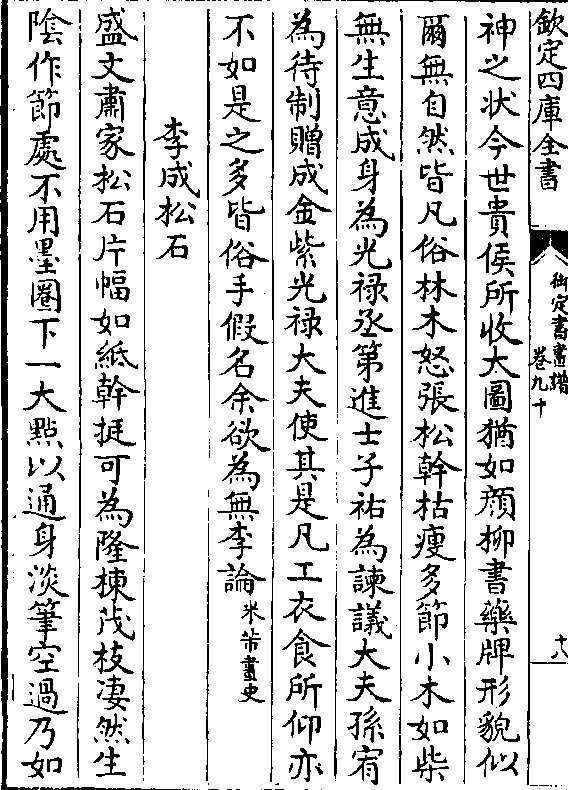 欽定四庫全書
御定書畫譜
卷九十
十八
神之狀今世貴侯所收大圖猶如顔柳書藥牌形貌似
爾無自然皆凡俗林木怒張松幹枯瘦多節小木如柴
無生意成身為光禄丞第進士子祐為諫議大夫孫宥
為待制贈成金紫光禄大夫使其是凡工衣食所仰亦
不如是之多皆俗手假名余欲為無李論米芾畫史
李成松石
盛文肅家松石片幅如紙幹挺可為隆棟茂枝凄然生
陰作節處不用墨圏下一大點以通身淡筆空過乃如